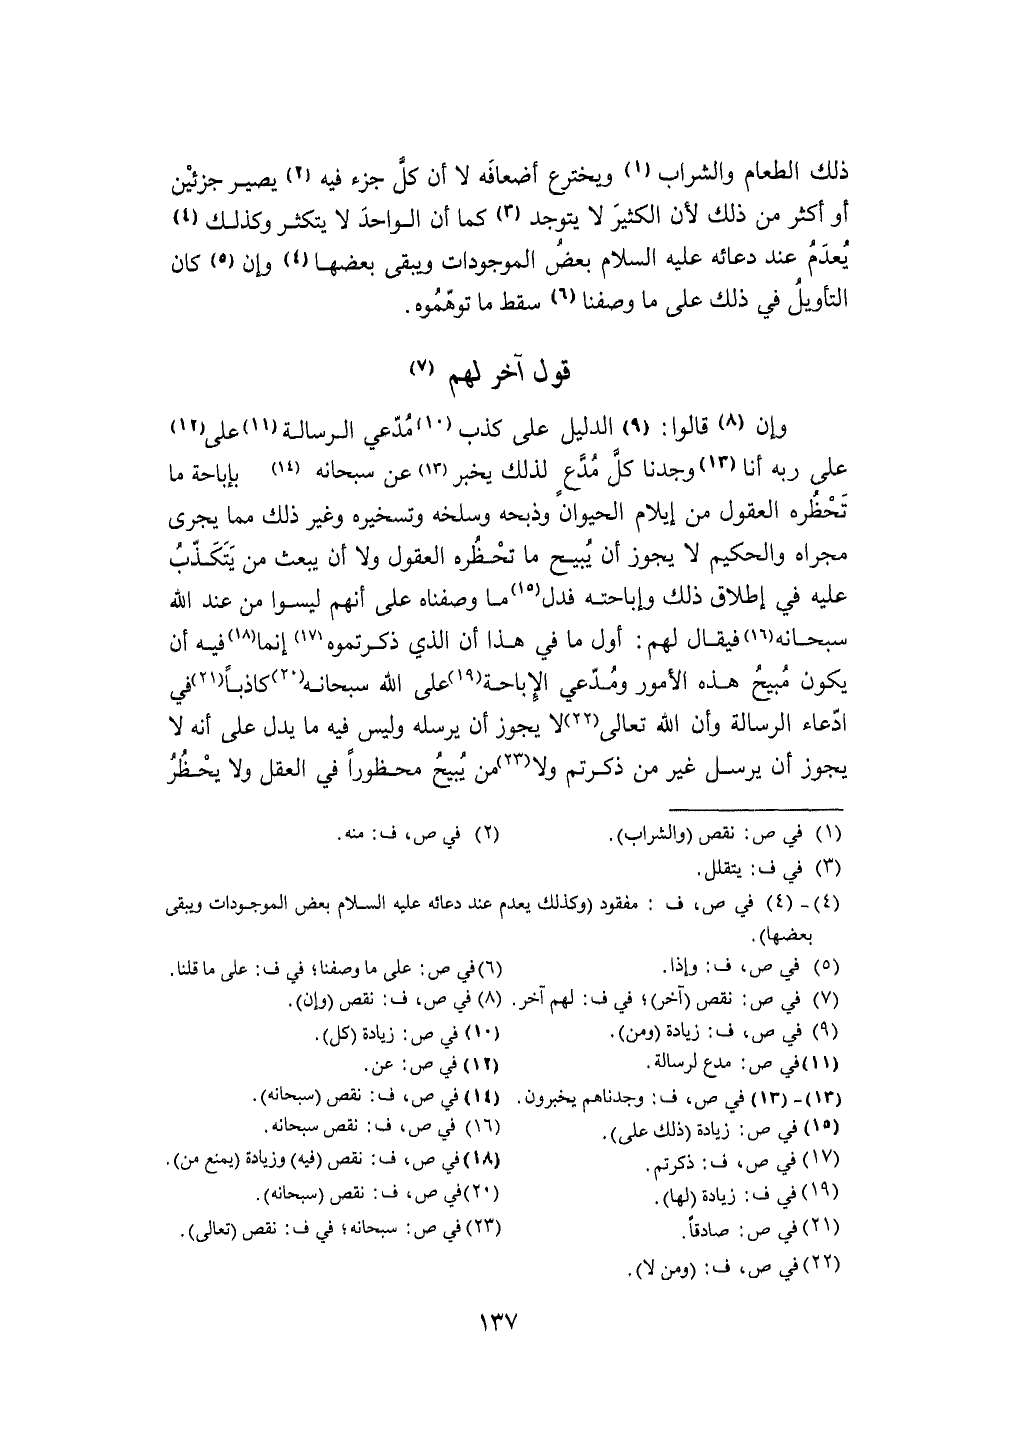 ذلك الطعام والشراب (١) ويخترع أضعافَه لا أن كلَّ جزء فيه (٢) يصير جزئيْن
أو أكثر من ذلك لأن الكثيرَ لا يتوجد (٣) كما أن الواحدَ لا يتكثر وكذلك (٤)
يُعدَمُ عند دعائه عليه السلام بعضُ الموجودات ويبقى بعضها (٤) وإن (٥) كان
التأويلُ في ذلك على ما وصفنا (٦) سقط ما توهّمُوه .
قول آخر لهم (٧)
وإن (٨) قالوا: (٩) الدليل على كذب (١٠) مُدّعي الرسالة (١١) على (١٢)
على ربه أنا (١٣) وجدنا كلَّ مُدَّعٍ لذلك يخبر (١٣) عن سبحانه (١٤) بإباحة ما
تَحْظُره العقول من إيلام الحيوان وذبحه وسلخه وتسخيره وغير ذلك مما يجرى
مجراه والحكيم لا يجوز أن يُبيح ما تحْظُره العقول ولا أن يبعث من يَتَكَذّبُ
عليه في إطلاق ذلك وإباحته فدل (١٥) ما وصفناه على أنهم ليسوا من عند الله
سبحانه (١٦) فيقال لهم : أول ما في هذا أن الذي ذكرتموه (١٧) إنما (١٨) فيه أن
يكون مُبيحُ هذه الأمور ومُدّعي الإباحة (١٩) على الله سبحانه (٢٠) كاذباً (٢١) في
ادّعاء الرسالة وأن الله تعالى (٢٢) لا يجوز أن يرسله وليس فيه ما يدل على أنه لا
يجوز أن يرسل غير من ذكرتم ولا (٢٣) من يُبيحُ محظوراً في العقل ولا يحْظُرُ
(١) في ص: نقص (والشراب). (٢) في ص، ف: منه.
(٣) في ف: يتقلل.
(٤) - (٤) في ص، ف : مفقود (وكذلك يعدم عند دعائه عليه السلام بعض الموجودات ويبقى
بعضها).
(٥) في ص، ف: وإذا. (٦) في ص: على ما وصفنا؛ في ف: على ما قلنا.
(٧) في ص: نقص (آخر)؛ في ف: لهم آخر. (٨) في ص، ف: نقص (وإن).
(٩) في ص، ف: زيادة (ومن). (١٠) في ص: زيادة (كل).
(١١) في ص: مدع لرسالة. (١٢) في ص: عن.
(١٣) - (١٣) في ص، ف: وجدناهم يخبرون. (١٤) في ص، ف: نقص (سبحانه).
(١٥) في ص: زيادة (ذلك على). (١٦) في ص، ف: نقص سبحانه.
(١٧) في ص، ف: ذكرتم. (١٨) في ص، ف: نقص (فيه) وزيادة (يمنع من).
(١٩) في ف: زيادة (لها). (٢٠) في ص، ف: نقص (سبحانه).
(٢١) في ص: صادقاً. (٢٣) في ص: سبحانه؛ في ف: نقص (تعالى).
(٢٢) في ص، ف: (ومن لا).
١٣٧